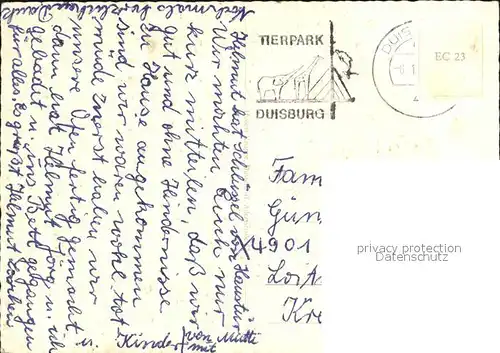 Nochmals herzlichen Dank
Helmut hat Schlüssel von Haustür
Wir möchten Euch nur
kurz mitteilen, daß wir
gut und ohne Hindernisse
zu Hause angekommen
sind wir waren wohl tot
müde zuerst haben wir
unsere Öfen fertig gemacht u.
dann hat Helmut Jörg u. ich
gebadet u. ins Bett gegangen
für alles Es grüßt Helmut
Kinder von Mutti
mit
TIERPARK
DUISBURG
DUIS
EC 23
Fam
Gün
4901
Kre
privacy protection
Datenschutz